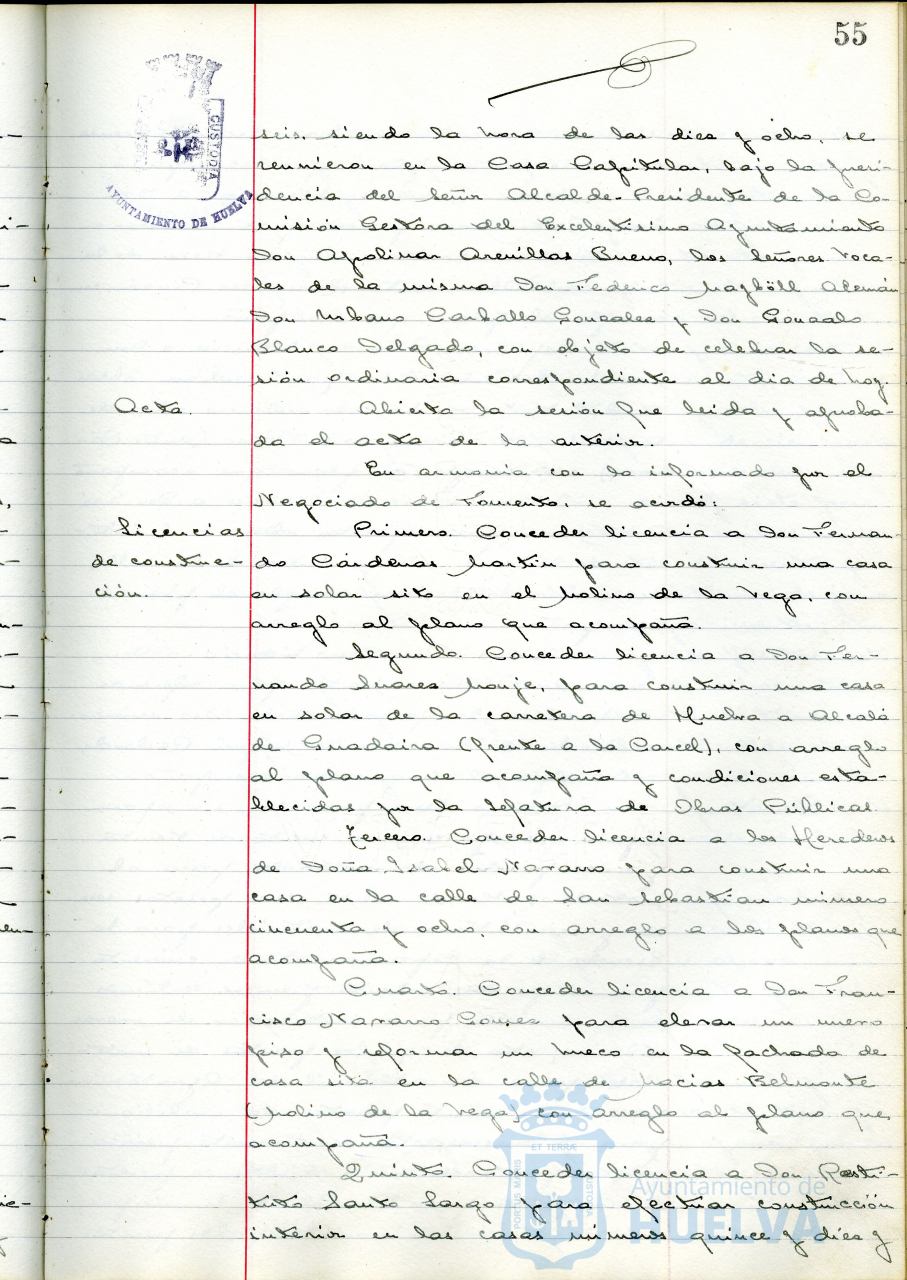 55
CUSTODIA
AYUNTAMIENTO DE HUELVA
seis, siendo la hora de las diez y ocho, se
reunieron en la Casa Capitular, bajo la presi-
dencia del Señor Alcalde-Presidente de la Co-
misión Gestora del Excelentísimo Ayuntamiento
Don Apolinar Arenillas Bueno, los Señores Voca-
les de la misma Don Federico Alemán
Don Urbano Carballo Gonzalez y Don Gonzalo
Blanco Delgado, con objeto de celebrar la se-
sión ordinaria correspondiente al dia de hoy.
Acta.
Abierta la sesión fue leida y aproba-
da el acta de la anterior.
En armonia con lo informado por el
Negociado de Fomento, se acordó:
Licencias
de construc-
ción.
Primero. Conceder licencia a Don Fernan-
do Cárdenas Martín para construir una casa
en solar sito en el Molino de la Vega, con
arreglo al plano que acompaña.
Segundo. Conceder licencia a Don Fer-
nando Suarez Monje, para construir una casa
en solar de la carretera de Huelva a Alcalá
de Guadaira (frente a la Carcel), con arreglo
al plano que acompaña y condiciones esta-
blecidas por la Jefatura de Obras Públicas.
Tercero. Conceder licencia a los Herederos
de Doña Isabel Navarro para construir una
casa en la calle de San Sebastian número
cincuenta y ocho, con arreglo a los planos que
acompaña.
Cuarto. Conceder licencia a Don Fran-
cisco Navarro Gomez para elevar un nuevo
piso y reformar un hueco en la fachada de
casa sita en la calle de Macias Belmonte
(Molino de la Vega) con arreglo al plano que
acompaña.
Quinto. Conceder licencia a Don Resti-
tuto Santo Largo para efectuar construcción
interior en las casas números quince y diez y
ET TERRÆ
PORTUS MARIS
CUSTODIA
Ayuntamiento de
HUELVA